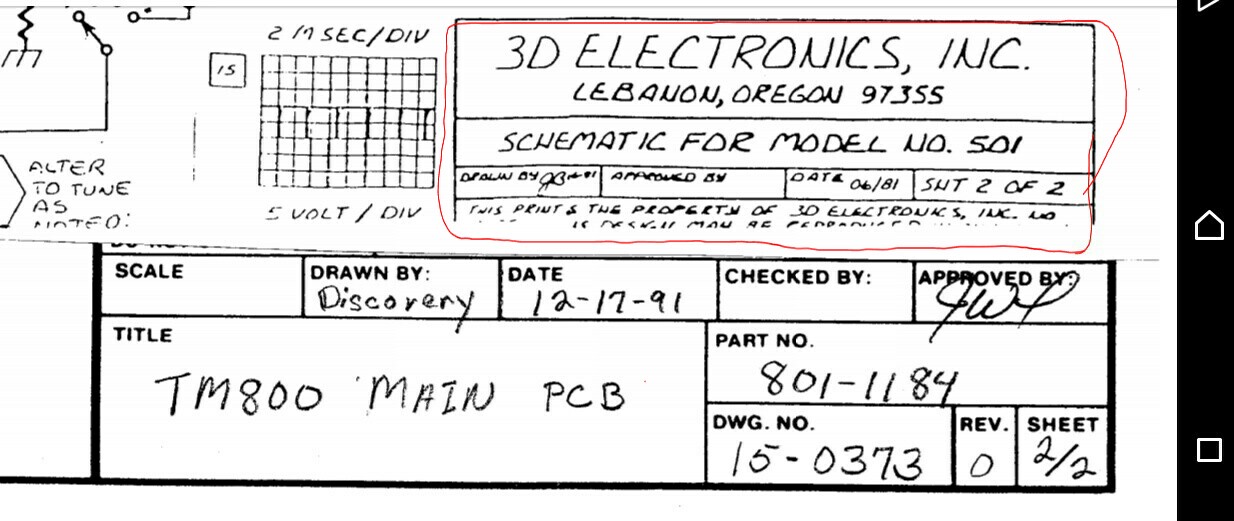 2 MSEC/DIV
15
5 VOLT / DIV
ALTER
TO TUNE
AS
NOTED:
3D ELECTRONICS, INC.
LEBANON, OREGON 97355
SCHEMATIC FOR MODEL NO. 501
DRAWN BY
APPROVED BY
DATE 06/81
SHT 2 OF 2
THIS PRINT IS THE PROPERTY OF 3D ELECTRONICS, INC. NO
IS DESIGN MAY BE REPRODUCED
SCALE
DRAWN BY: Discovery
DATE 12-17-91
CHECKED BY:
APPROVED BY:
TITLE
TM800 MAIN PCB
PART NO.
801-1184
DWG. NO.
15-0373
REV.
0
SHEET
2/2